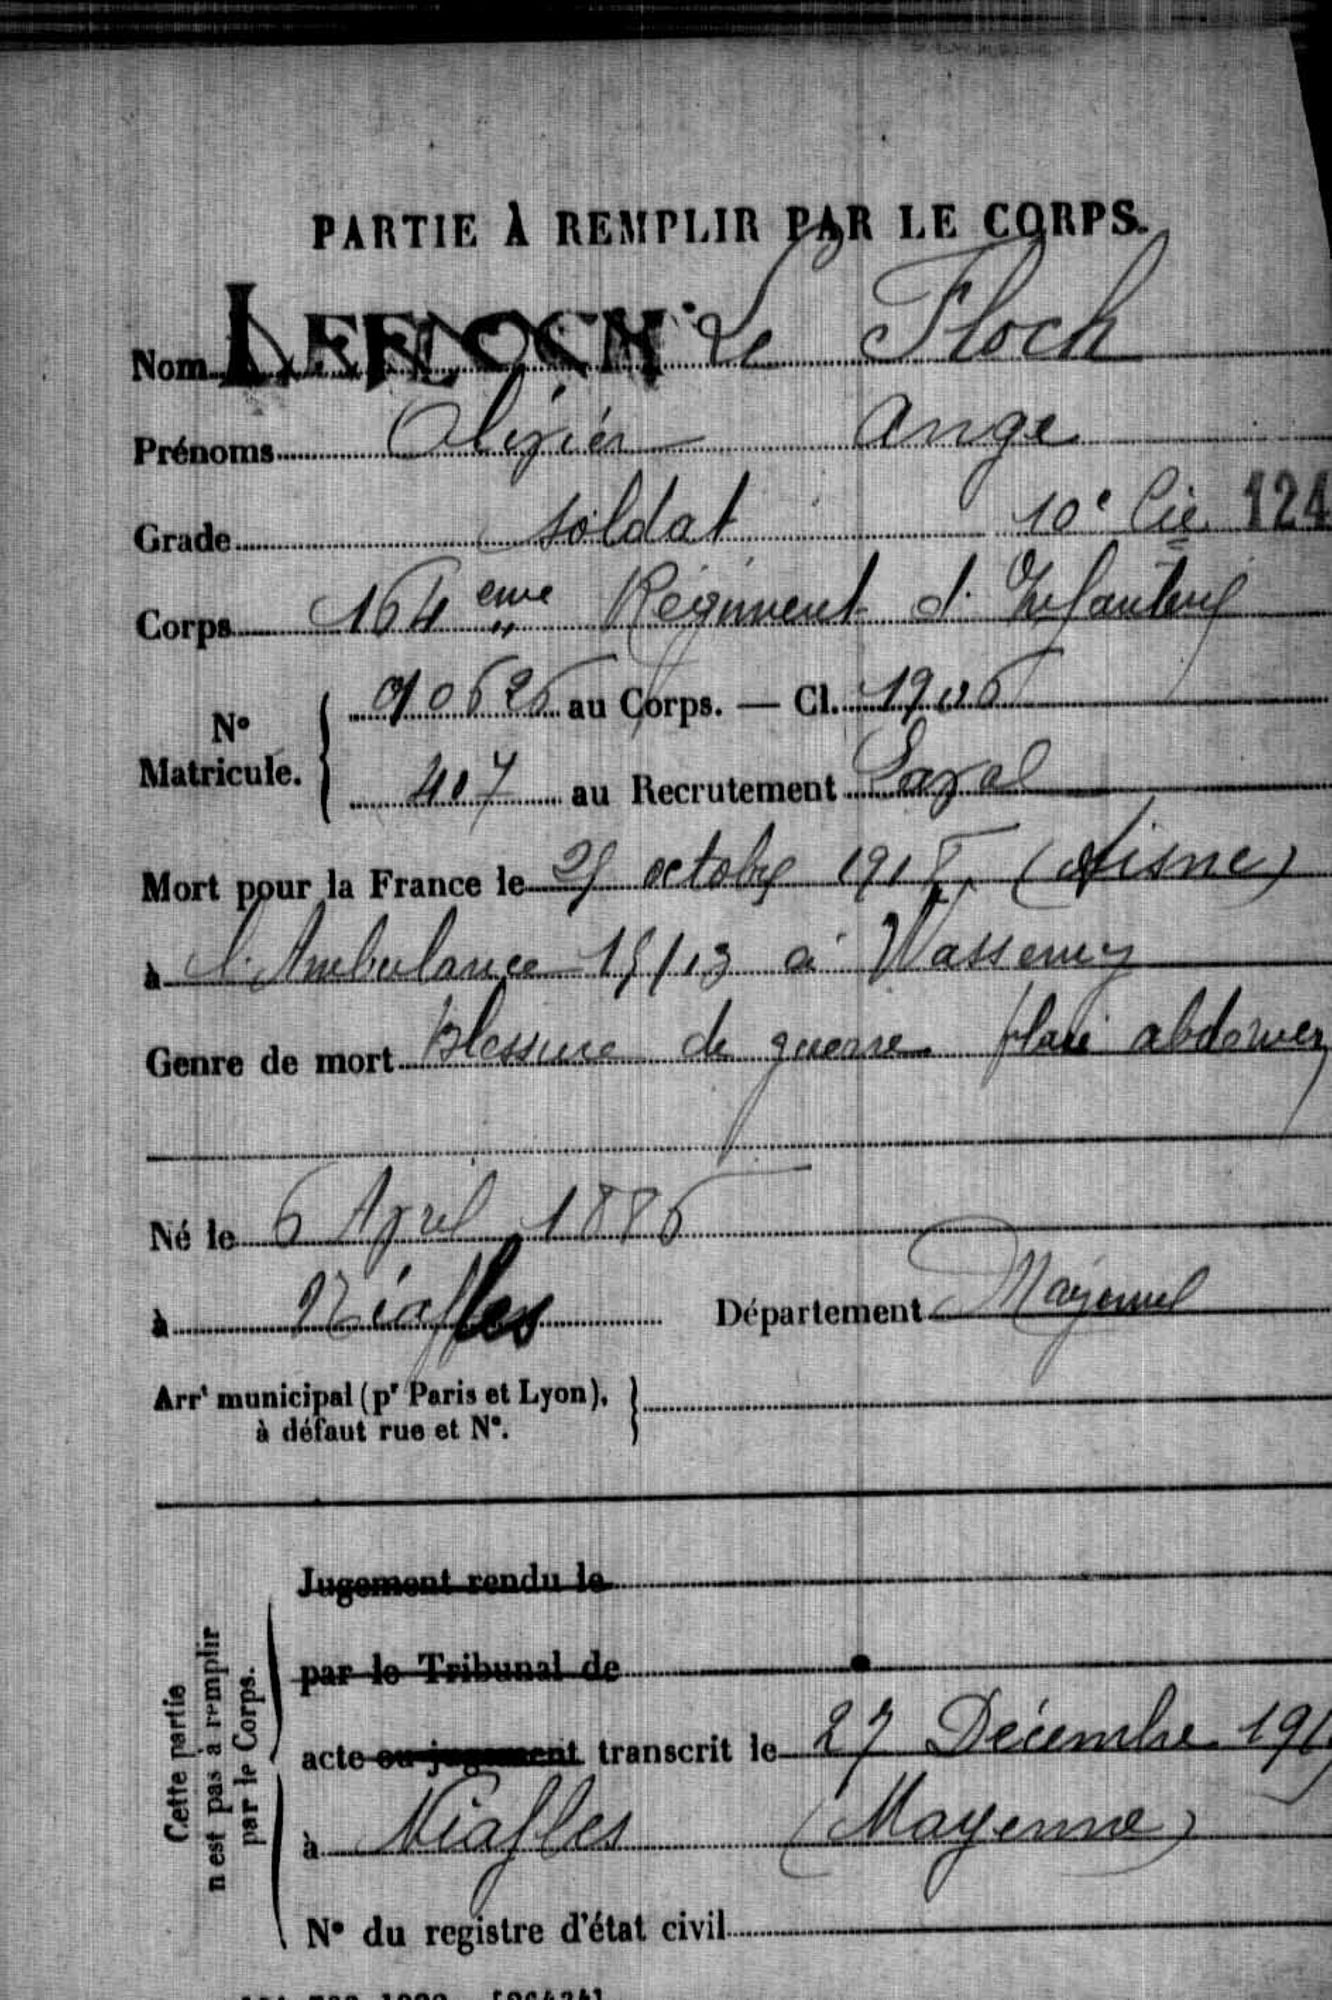 PARTIE À REMPLIR PAR LE CORPS.
Nom LEFLOCH Le Floch
Prénoms Olivier Ange
Grade soldat 10e Cie 124
Corps 164 eme Régiment d'Infanterie
N° Matricule. { au Corps. — Cl. 1906
407 au Recrutement Laval
Mort pour la France le octobre 191 (Aisne)
à l'Ambulance 15/13 à Vasseny
Genre de mort Blessure de guerre plaie abdomen
Né le 6 Avril 1886
à Niafles Département Mayenne
Arrt municipal (pr Paris et Lyon), }
à défaut rue et N°.
Cette partie
n'est pas à remplir
par le Corps.
Jugement rendu le
par le Tribunal de
acte ou jugement transcrit le 27 Décembre 191
à Niafles (Mayenne)
N° du registre d'état civil